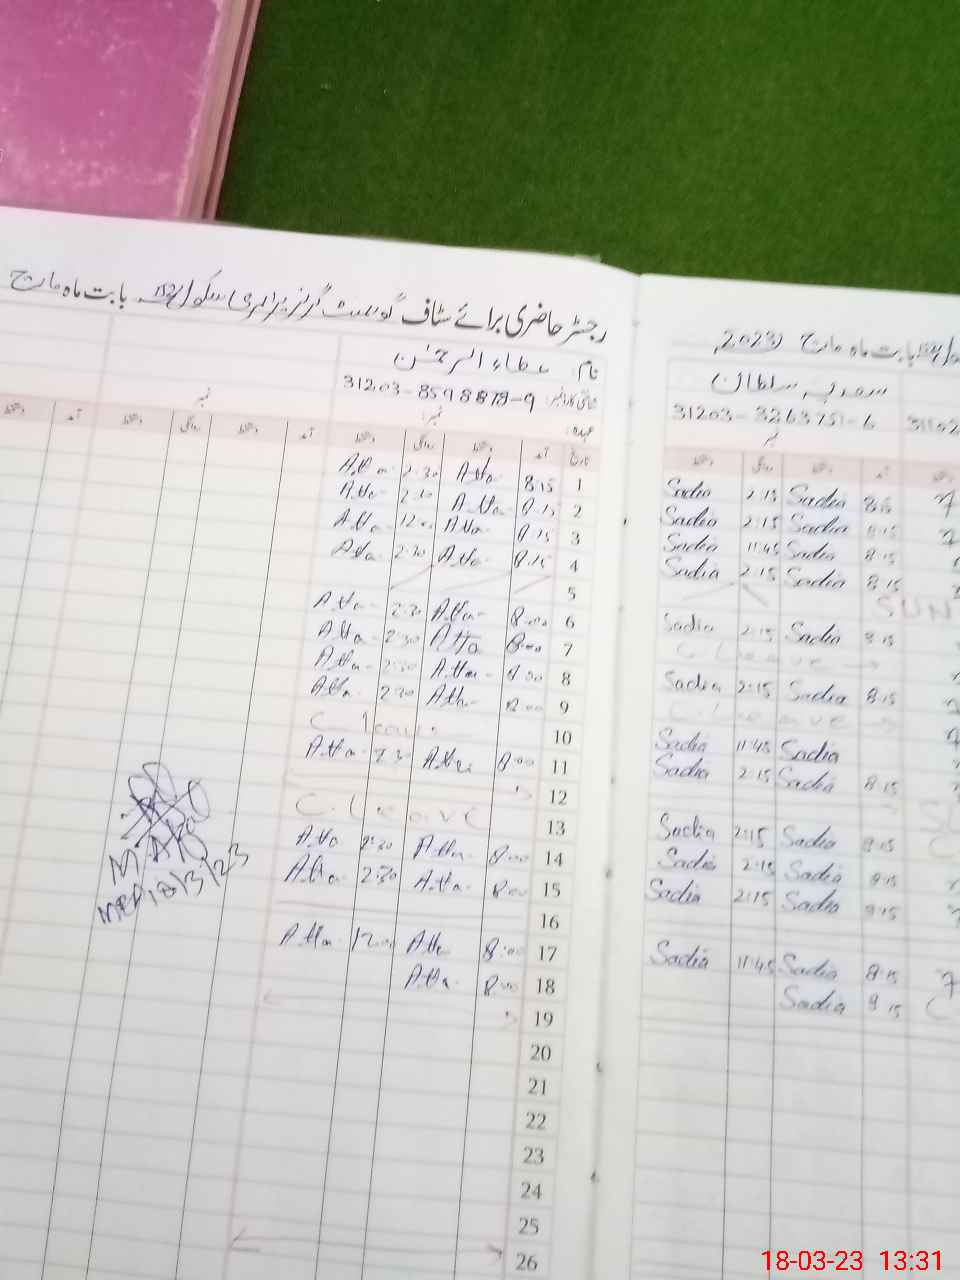 رجسٹر حاضری برائے سٹاف گورنمنٹ گرلز پرائمری سکول بابت ماہ مارچ
نام: عطاء الرحمٰن
شناختی کارڈ نمبر: 31203-8598878-9
عہدہ: نمبر:
تاریخ آمد دستخط روانگی دستخط آمد دستخط روانگی دستخط آمد
Atta 2:30 Atta 8:15 1
Atta Atta 8:15 2
Atta 12:00 Atta 8:15 3
Atta 2:30 Atta 8:15 4
5
Atta 2:30 Atta 8:00 6
Atta 2:30 Atta 8:00 7
Atta 2:30 Atta 8:00 8
Atta 2:30 Atta 8:00 9
C. Leave 10
Atta 2:30 Atta 8:00 11
12
C. Leave 13
Atta 2:30 Atta 8:00 14
Atta 2:30 Atta 8:00 15
16
Atta 12:00 Atta 8:00 17
Atta 8:00 18
19
20
21
22
23
24
25
26
18/3/23
بابت ماہ مارچ 2023
سعدیہ سلطان
31203-3263751-6
نمبر
دستخط روانگی دستخط آمد
Sadia 2:15 Sadia 8:15
Sadia 2:15 Sadia 8:15
Sadia 11:45 Sadia 8:15
Sadia 2:15 Sadia 8:15
SUN
Sadia 2:15 Sadia 8:15
C. Leave
Sadia 2:15 Sadia 8:15
C. Leave
Sadia 11:45 Sadia
Sadia 2:15 Sadia 8:15
Sadia 2:15 Sadia 8:15
Sadia 2:15 Sadia 8:15
Sadia 2:15 Sadia 8:15
Sadia 11:45 Sadia 8:15
Sadia 8:15
18-03-23 13:31